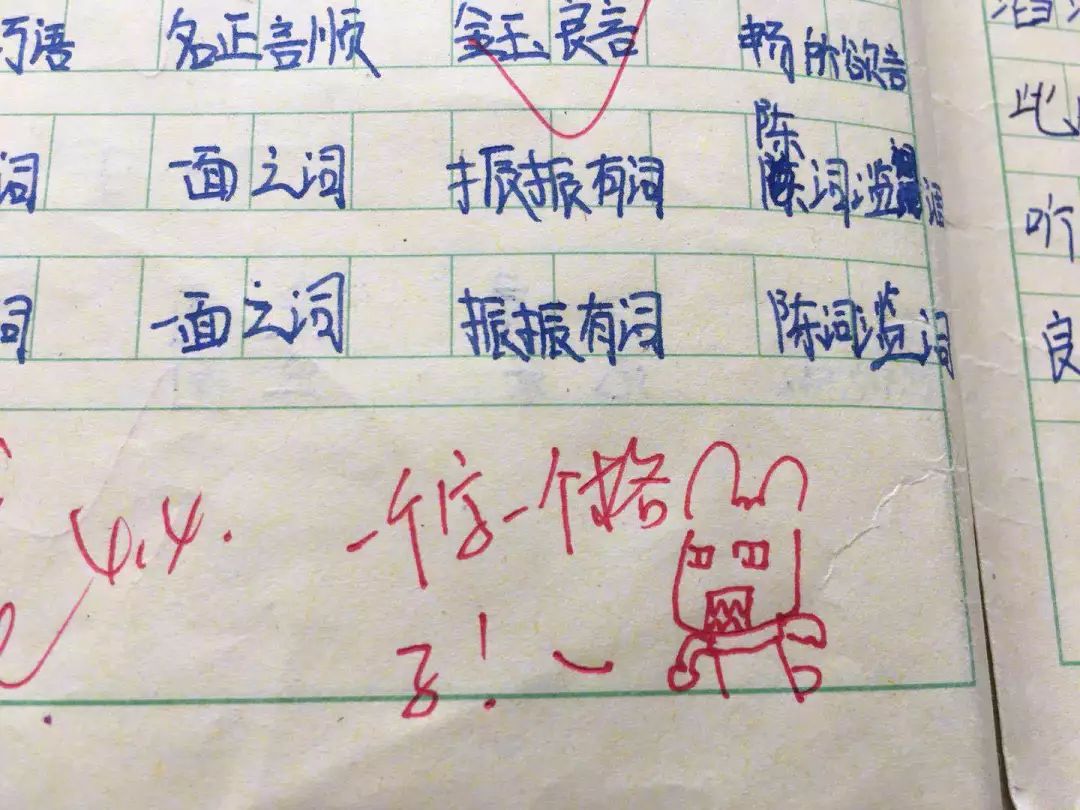 巧语 名正言顺 金玉良言 畅所欲言
词 一面之词 振振有词 陈词滥
词 一面之词 振振有词 陈词滥词
4.4. 一个字一个格
子！
此
听
良